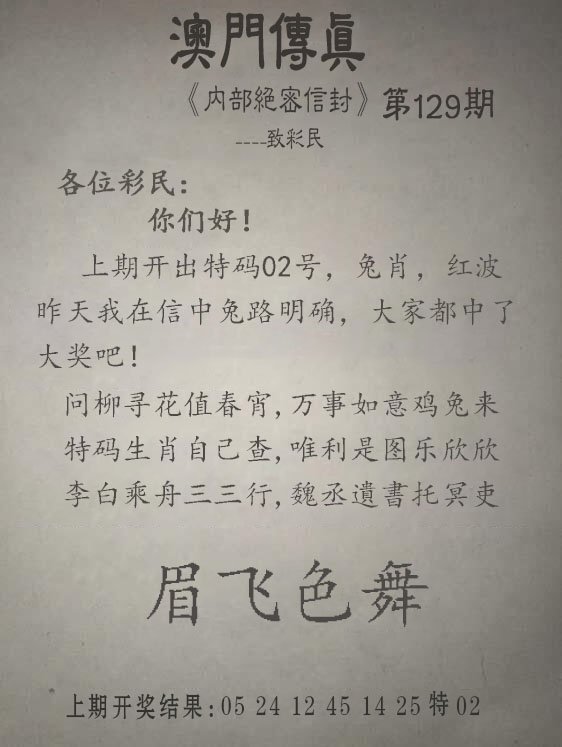 澳門傳眞
《内部絕密信封》第129期
----致彩民
各位彩民:
你们好!
上期开出特码02号，兔肖，红波
昨天我在信中兔路明确，大家都中了
大奖吧!
问柳寻花值春宵,万事如意鸡兔来
特码生肖自己查,唯利是图乐欣欣
李白乘舟三三行,魏丞遺書托冥吏
眉飞色舞
上期开奖结果:05 24 12 45 14 25 特 02